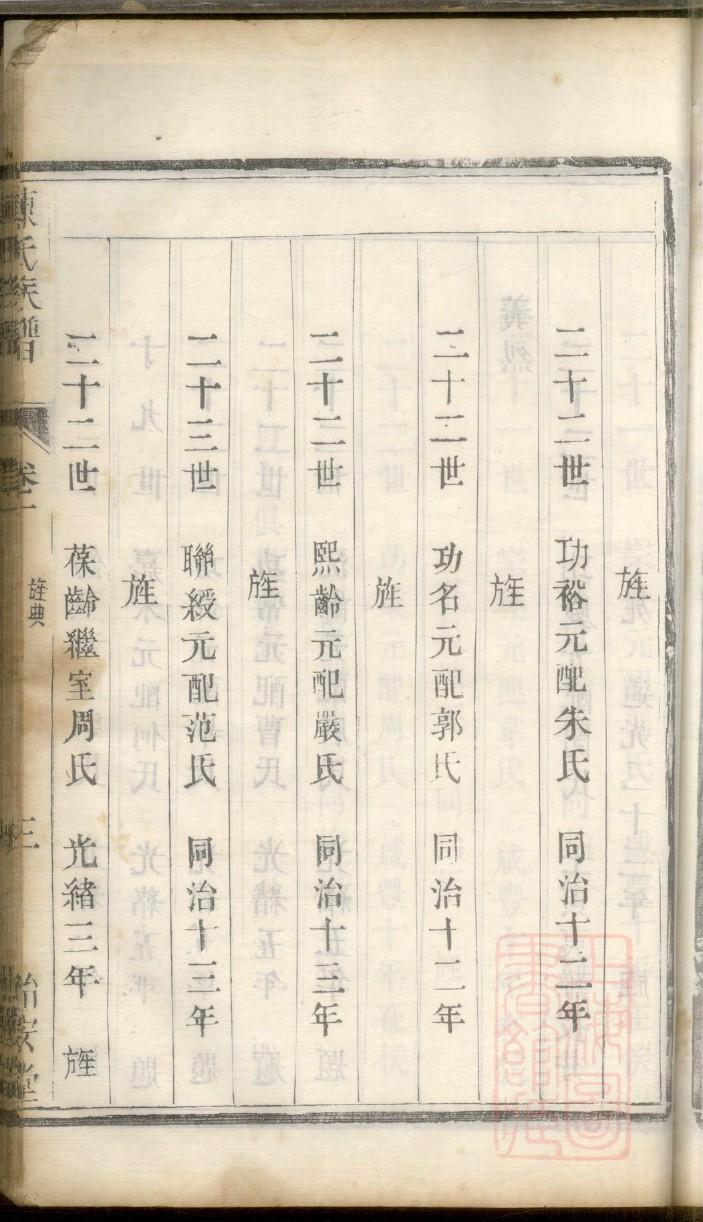 旌
二十二世　功裕元配朱氏　同治十二年
旌
二十二世　功名元配郭氏　同治十二年
旌
二十二世　熙齡元配嚴氏　同治十三年
旌
二十三世　聯綬元配范氏　同治十三年
旌
二十二世　葆齡繼室周氏　光緒三年　旌
陳氏族譜　卷一　旌典　三